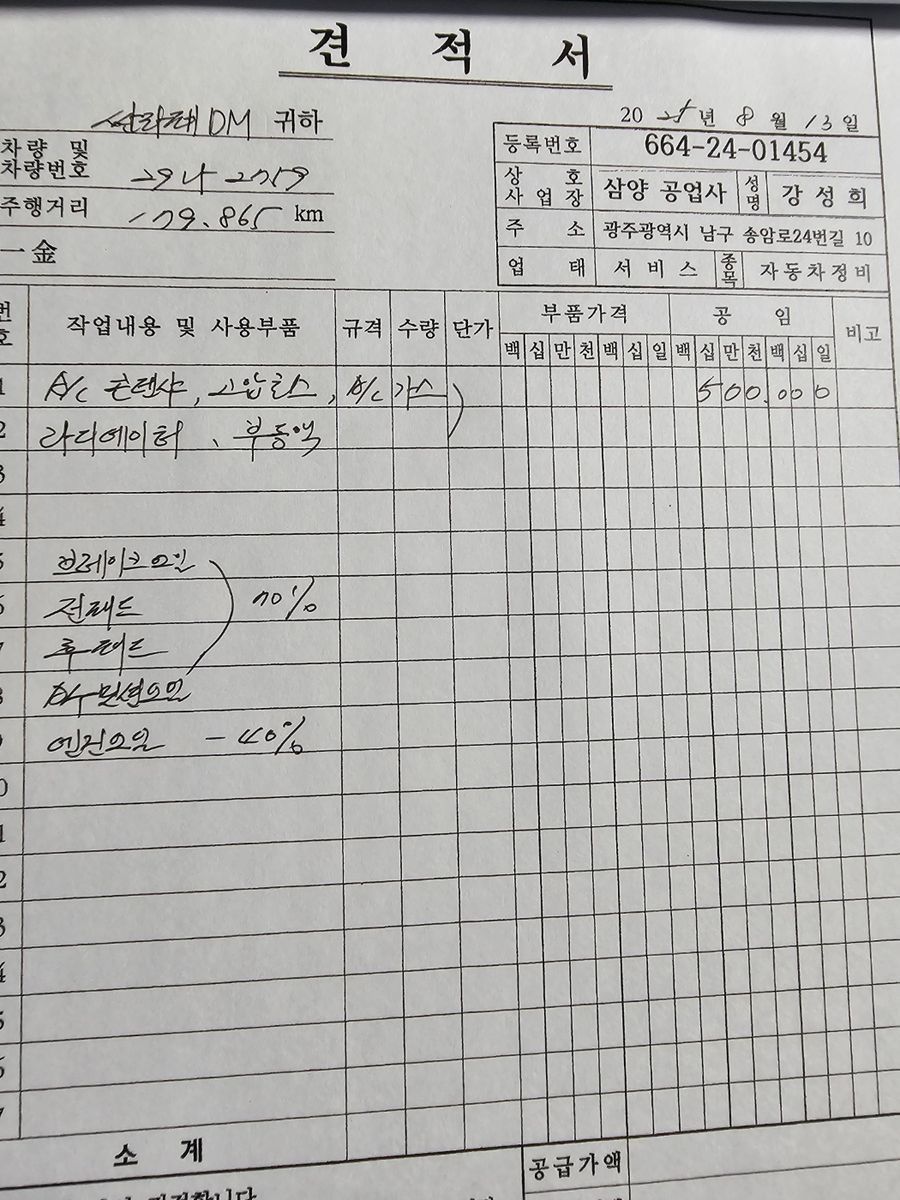 견 적 서
싼타페 DM 귀하
2025년 8월 13일
차량 및
차량번호 29나 2759
주행거리 179.865 km
一金
등록번호 664-24-01454
상 호
사 업 장 삼양 공업사 성명 강성희
주 소 광주광역시 남구 송암로24번길 10
업 태 서비스 종목 자동차정비
번호 작업내용 및 사용부품 규격 수량 단가 부품가격 공 임 비고
백 십 만 천 백 십 일 백 십 만 천 백 십 일
1 A/C 콘덴샤, 고압호스, A/C 가스 500.000
2 라디에이터, 부동액
3
4
5 브레이크오일
6 전패드 70%
7 후패드
8 미션오일
9 엔진오일 - 40%
0
1
2
3
4
5
6
7
소 계
공급가액